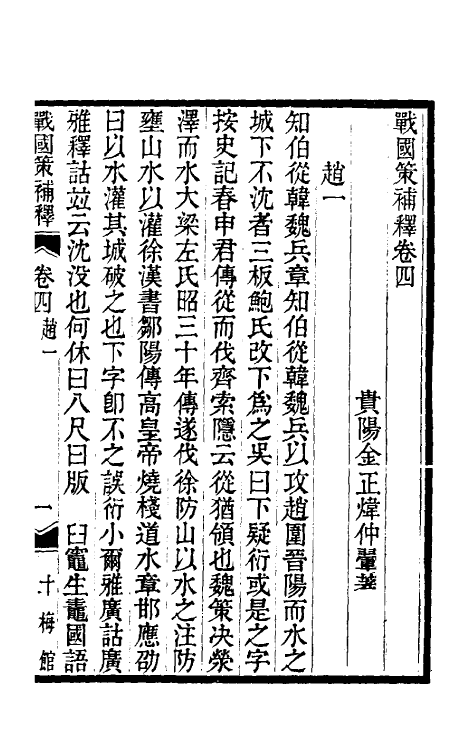 戰國策補釋卷四
貴陽金正煒仲翬箸
趙一
知伯從韓魏兵章知伯從韓魏兵以攻趙圍晉陽而水之
城下不沈者三板鮑氏改下爲之吳曰下疑衍或是之字
按史記春申君傳從而伐齊索隱云從猶領也魏策決滎
澤而水大梁左氏昭三十年傳遂伐徐防山以水之注防
壅山水以灌徐漢書鄒陽傳高皇帝燒棧道水章邯應劭
曰以水灌其城破之也下字卽不之誤衍小爾雅廣詁廣
雅釋詁竝云沈没也何休曰八尺曰版　臼竈生鼃國語
戰國策補釋　卷四　趙一　一　十梅館